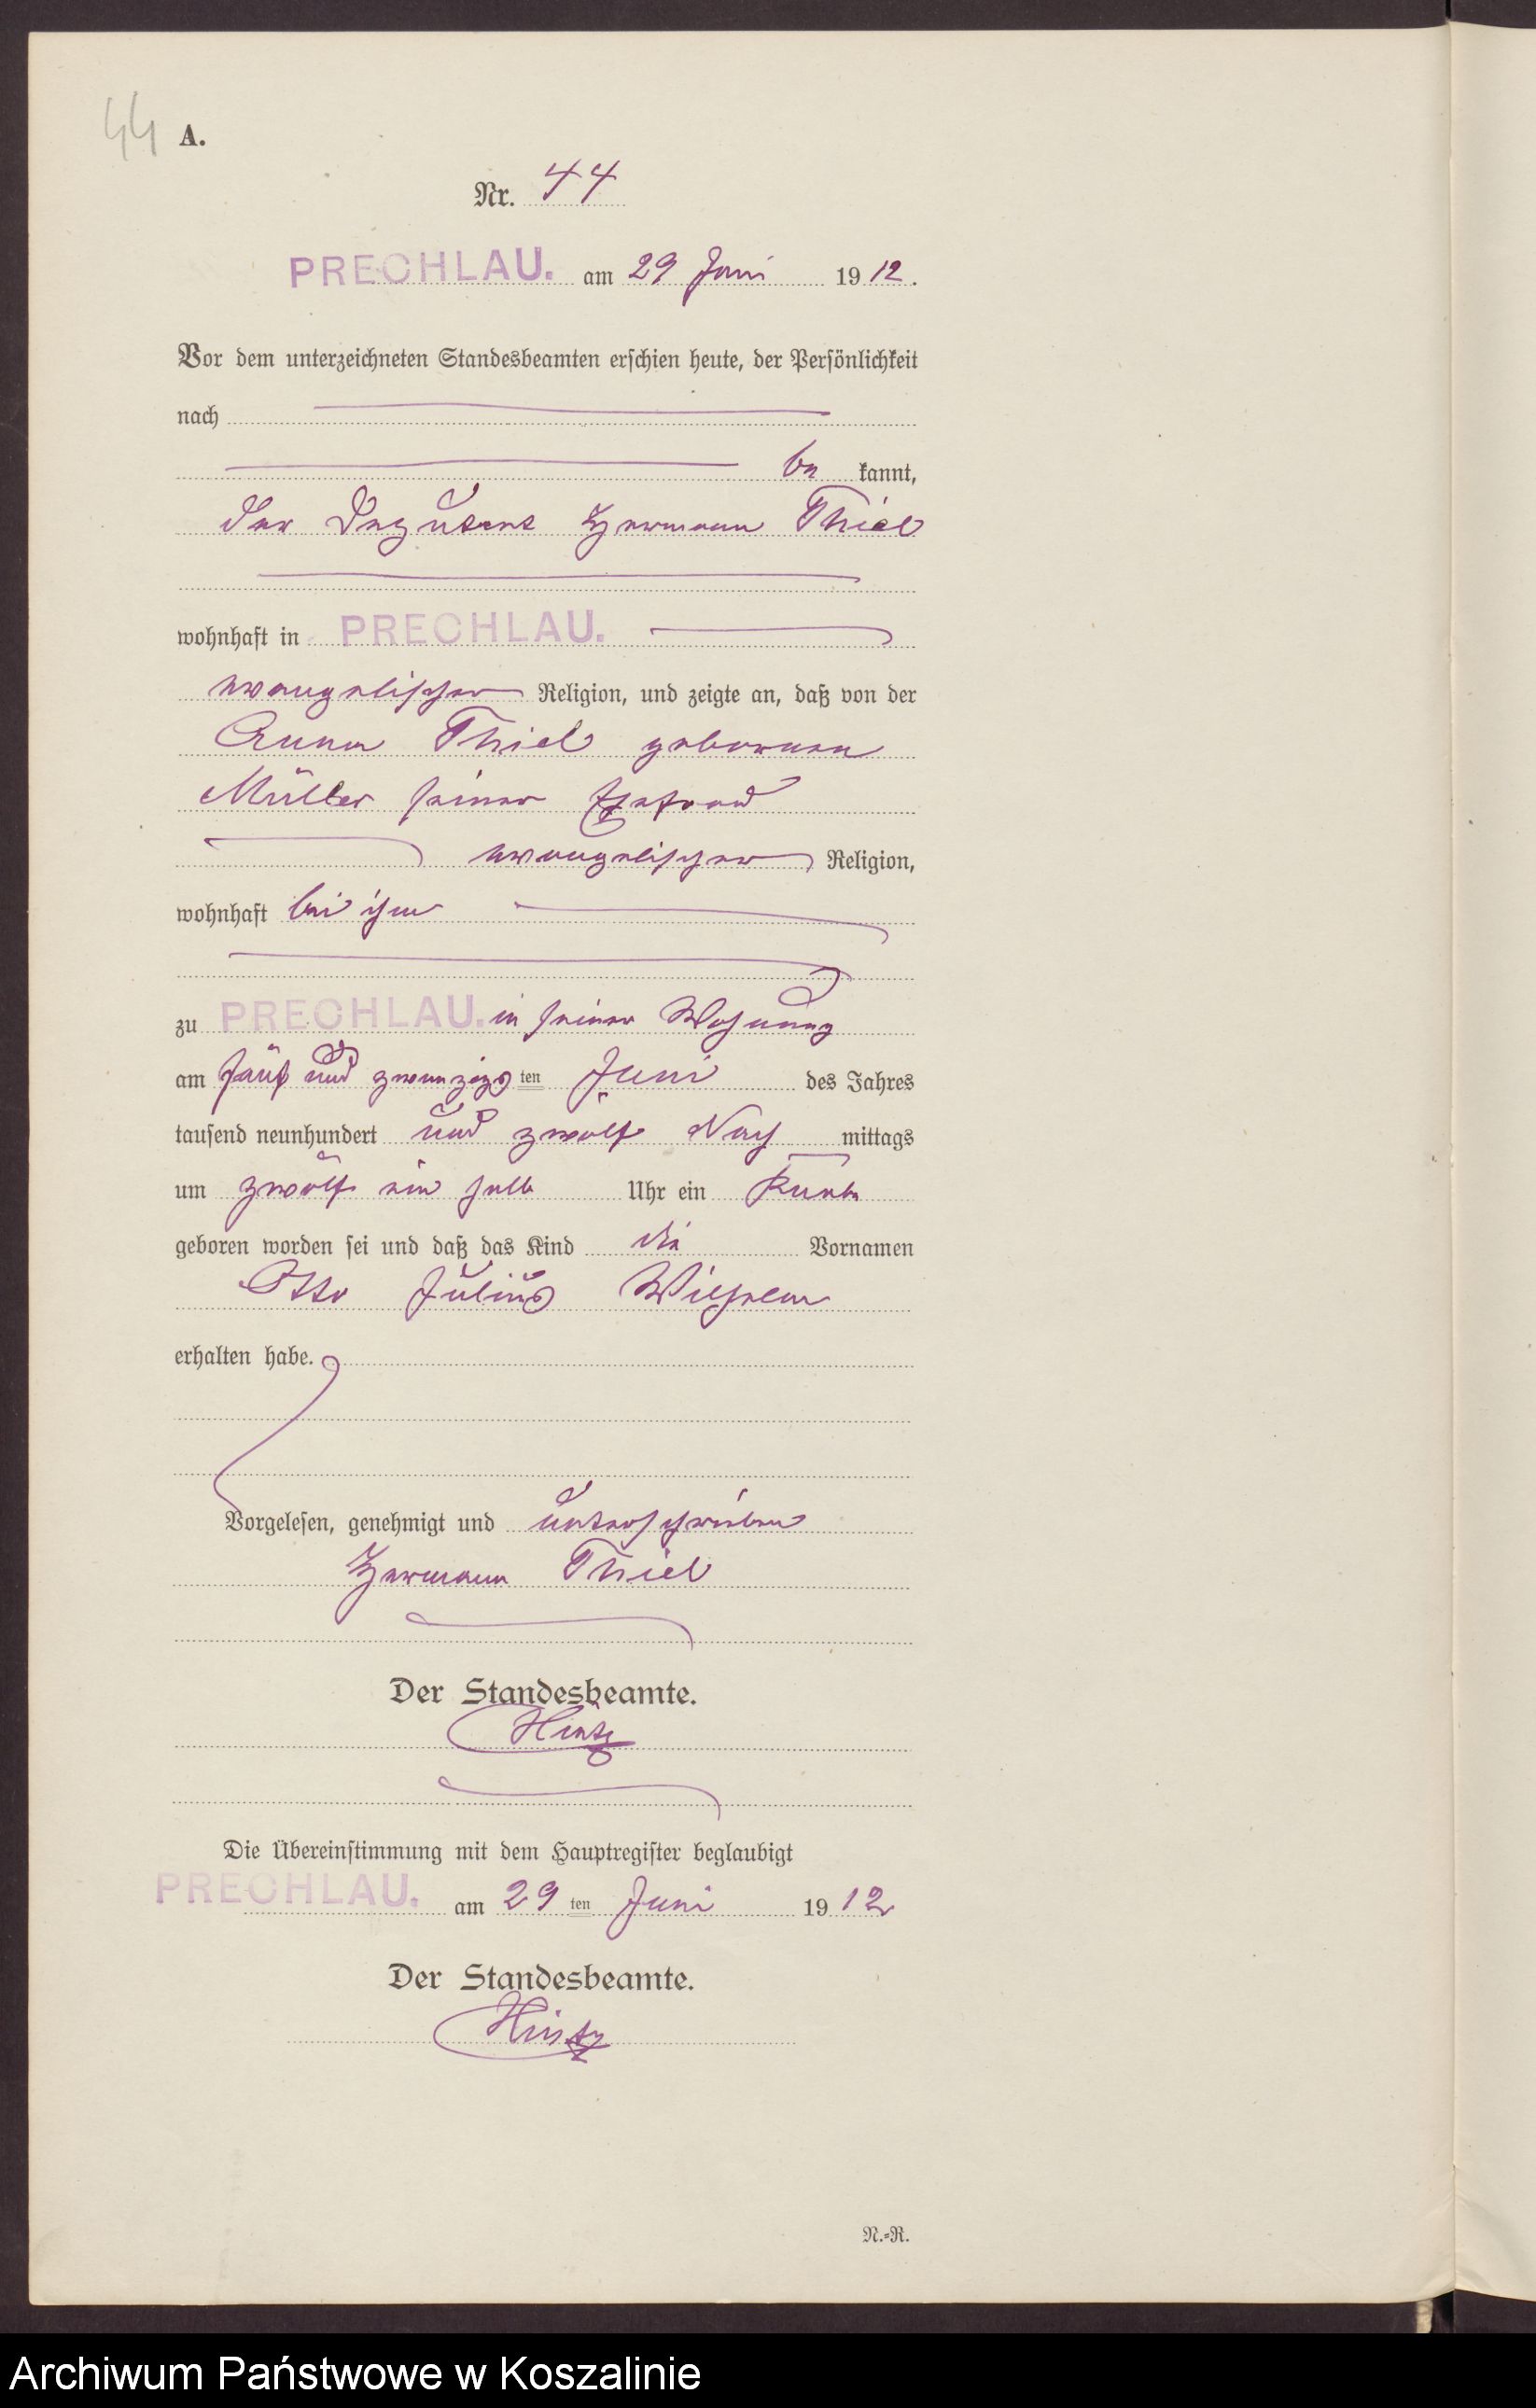 44 A.
Nr. 44
PRECHLAU. am 29 Juni 1912.
Vor dem unterzeichneten Standesbeamten erschien heute, der Persönlichkeit
nach
be kannt,
der Hermann Thiel
wohnhaft in PRECHLAU.
evangelischer Religion, und zeigte an, daß von der
Anna Thiel geborenen
Müller seiner Ehefrau
evangelischer Religion,
wohnhaft bei ihm
zu PRECHLAU. in seiner Wohnung
am fünf und zwanzigsten Juni des Jahres
tausend neunhundert und zwölf Nach mittags
um zwölf ein halb Uhr ein Knabe
geboren worden sei und daß das Kind die Vornamen
Otto Julius Wilhelm
erhalten habe.
Vorgelesen, genehmigt und unterschrieben
Hermann Thiel
Der Standesbeamte.
Hintz
Die Übereinstimmung mit dem Hauptregister beglaubigt
PRECHLAU. am 29 ten Juni 1912
Der Standesbeamte.
Hintz
N.-R.
Archiwum Państwowe w Koszalinie